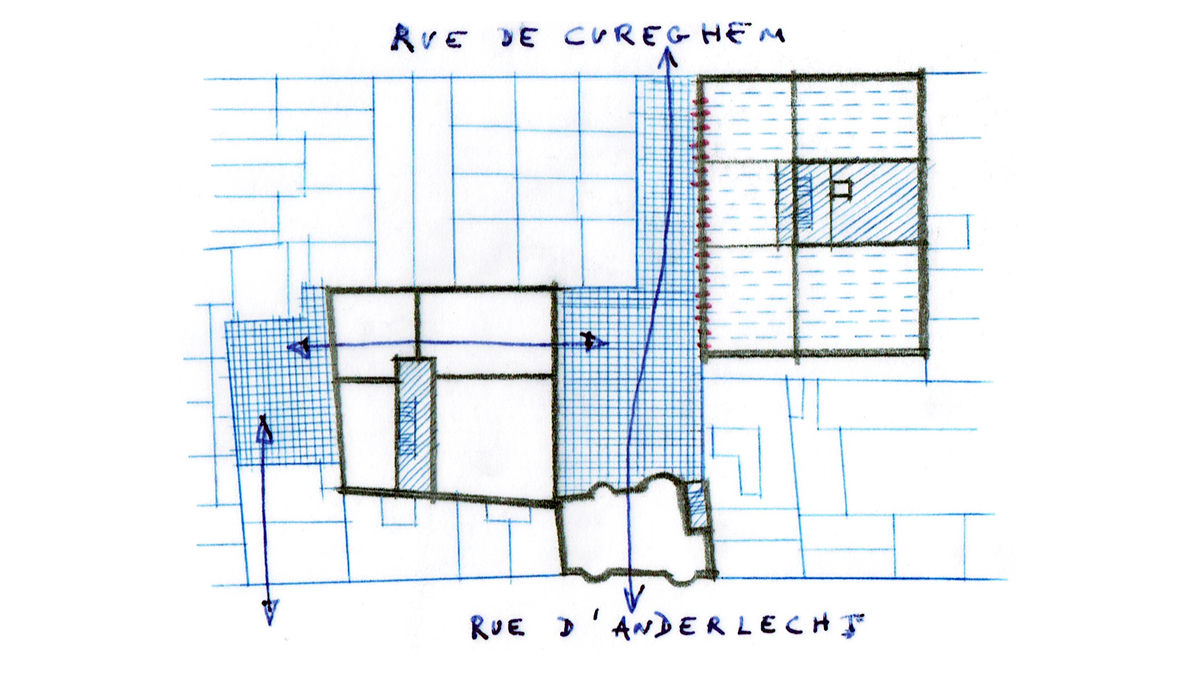 RUE DE CUREGHEM
RUE D'ANDERLECHT